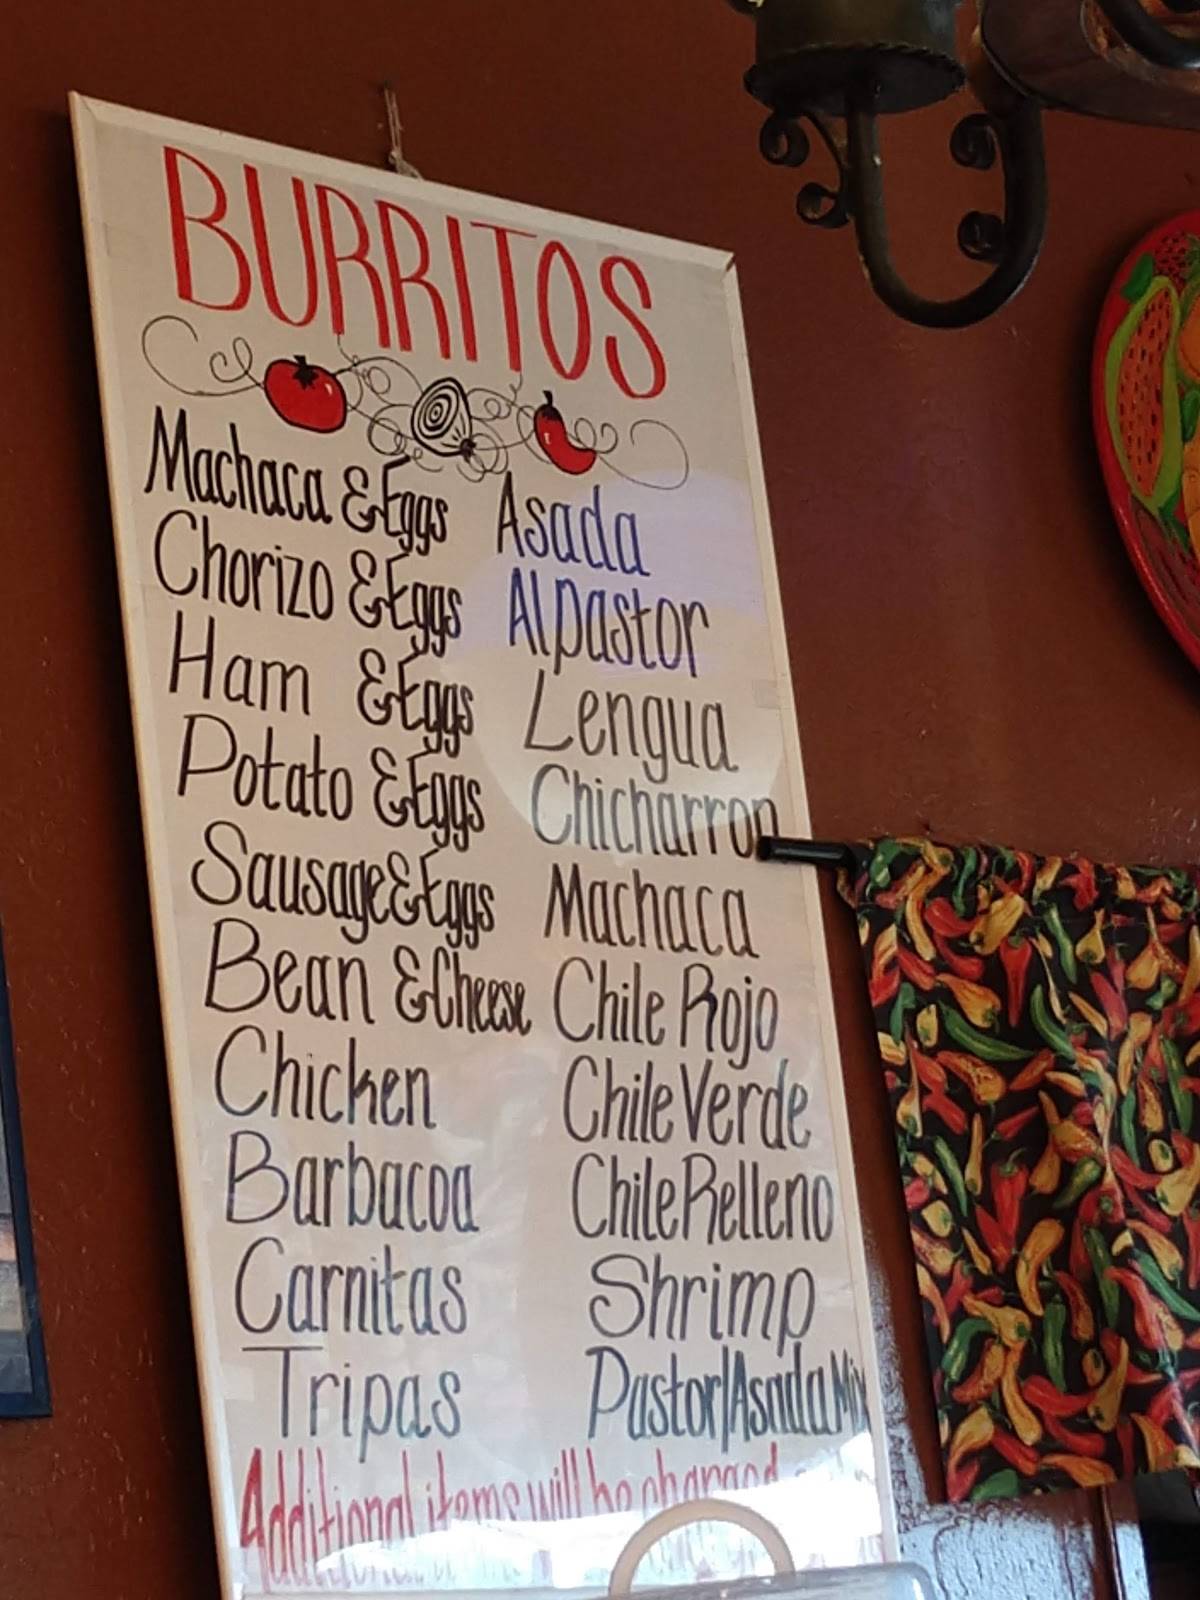 BURRITOS
Machaca & Eggs
Chorizo & Eggs
Ham & Eggs
Potato & Eggs
Sausage & Eggs
Bean & Cheese
Chicken
Barbacoa
Carnitas
Tripas
Asada
Al pastor
Lengua
Chicharron
Machaca
Chile Rojo
Chile Verde
Chile Relleno
Shrimp
Pastor/Asada Mix
Additional items will be charged